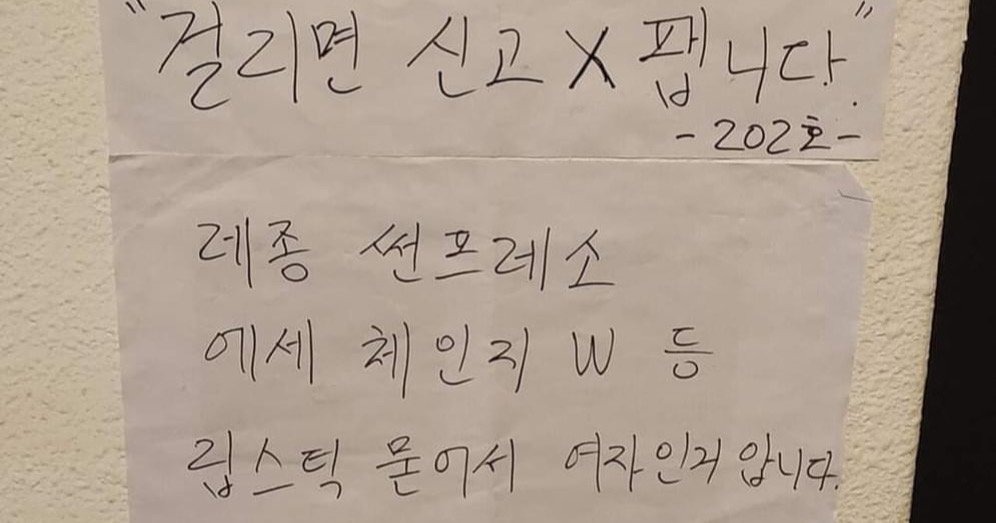 "걸리면 신고 X 팹니다."
-202호-
레종 썬프레소
에세 체인지 W 등
립스틱 묻어서 여자인거 압니다.